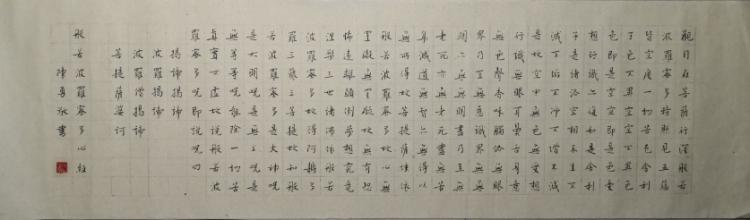 觀自在菩薩行深般若
波羅蜜多時照見五蘊
皆空度一切苦厄舍利
子色不異空空不異色
色即是空空即是色受
想行識亦復如是舍利
子是諸法空相不生不
滅不垢不淨不增不減
是故空中無色無受想
行識無眼耳鼻舌身意
無色聲香味觸法無眼
界乃至無意識界無無
明亦無無明盡乃至無
老死亦無老死盡無苦
集滅道無智亦無得以
無所得故菩提薩埵依
般若波羅蜜多故心無
罣礙無罣礙故無有恐
怖遠離顛倒夢想究竟
涅槃三世諸佛依般若
波羅蜜多故得阿耨多
羅三藐三菩提故知般
若波羅蜜多是大神咒
是大明咒是無上咒是
無等等咒能除一切苦
真實不虛故說般若波
羅蜜多咒即說咒曰
揭諦揭諦
波羅揭諦
波羅僧揭諦
菩提薩婆訶
般若波羅蜜多心經
陳 敬書